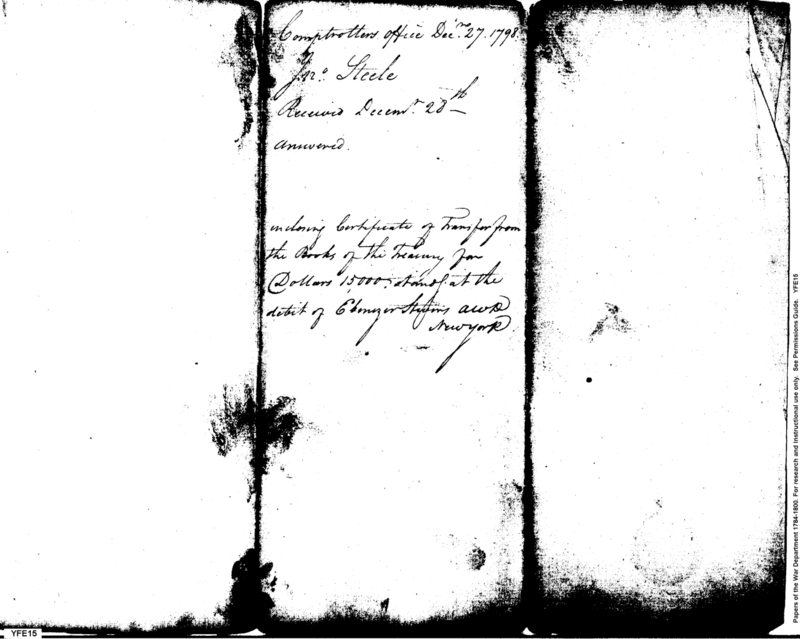 Comptrollers office Decr. 27. 1798
Jno. Steele
Received Decemr. 28th
answered.
inclosing Certificate of Transfer from
the Books of the Treasury for
Dollars 15,000 standg. at the
debit of Ebenezer Stevens
New york
YFE15
Papers of the War Department 1784-1800. For research and instructional use only. See Permissions Guide. YFE15